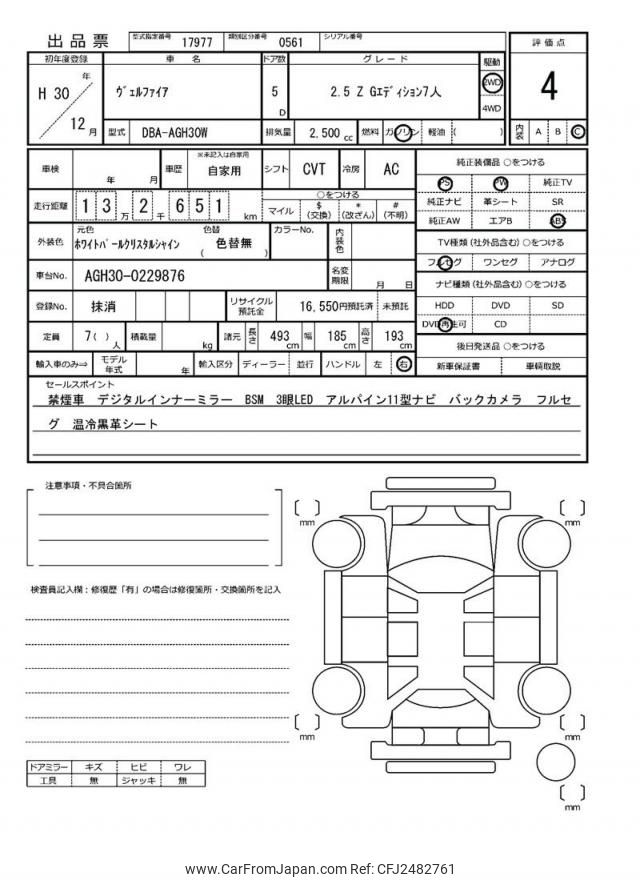 出品票 型式指定番号 17977 類別区分番号 0561 シリアル番号
初年度登録 車名 ドア数 グレード 駆動 評価点
H 30 年 12 月 ヴェルファイア 5 D 2.5 Z Gエディション7人 2WD 4WD 4
型式 DBA-AGH30W 排気量 2,500 cc 燃料 ガソリン 軽油 ( ) 内装 A B C
車検 年 月 車歴 ※未記入は自家用 自家用 シフト CVT 冷房 AC 純正装備品 ○をつける
PS PW 純正TV
走行距離 1 3 万 2 千 6 5 1 km ○をつける マイル $ (交換) * (改ざん) # (不明) 純正ナビ 革シート SR
純正AW エアB ABS
外装色 元色 ホワイトパールクリスタルシャイン 色替 ( 色替無 ) カラーNo. 内装色 TV種類 (社外品含む) ○をつける
フルセグ ワンセグ アナログ
車台No. AGH30-0229876 名変期限 月 日 ナビ種類 (社外品含む) ○をつける
登録No. 抹消 リサイクル預託金 16,550円預託済 未預託 HDD DVD SD
DVD再生可 CD
定員 7( ) 人 積載量 kg 諸元 長さ 493 cm 幅 185 cm 高さ 193 cm 後日発送品 ○をつける
輸入車のみ⇒ モデル年式 年 輸入区分 ディーラー 並行 ハンドル 左 右 新車保証書 車輌取説
セールスポイント
禁煙車 デジタルインナーミラー BSM 3眼LED アルパイン11型ナビ バックカメラ フルセ
グ 温冷黒革シート
注意事項・不具合箇所
mm mm
検査員記入欄：修復歴「有」の場合は修復箇所・交換箇所を記入
mm mm
ドアミラー キズ ヒビ ワレ
工具 無 ジャッキ 無
mm
www.CarFromJapan.com Ref: CFJ2482761